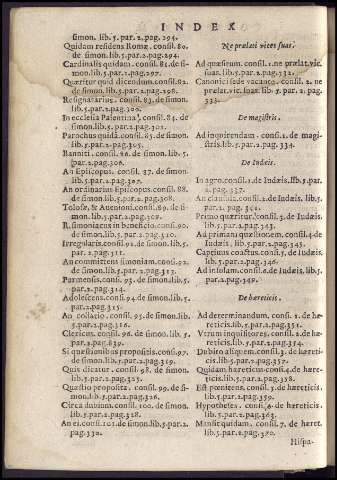 INDEX
simon. lib. 5. par. 2. pag. 294.
Quidam residens Romæ. consil. 80.
de simon. lib. 5. par. 2. pag. 294.
Cardinalis quidam. consil. 81. de si-
mon. lib. 5. par. 2. pag. 297.
Quæritur quid dicendum. consil. 82.
de simon. lib. 5. par. 2. pag. 298.
Resignatarius. consil. 83. de simon.
lib. 5. par. 2. pag. 300.
In ecclesia Palentina. consil. 84. de
simon. lib. 5. par. 2. pag. 302.
Parochus quidã. consil. 85. de simon.
lib. 5. par. 2. pag. 305.
Banniti. consil. 86. de simon. lib. 5.
par. 2. pag. 306.
An Episcopus. consil. 87. de simon.
lib. 5. par. 2. pag. 307.
An ordinarius Episcopus. consil. 88.
de simon. lib. 5. par. 2. pag. 308.
Tolosæ, & Auenioni. consil. 89. de si-
mon. lib. 5. par. 2. pag. 309.
R. simoniacus in beneficio. consil. 90.
de simon. lib. 5. par. 2. pag. 310.
Irregularis. consil. 91. de simon. lib. 5.
par. 2. pag. 311.
An committens simoniam. consil. 92.
de simon. lib. 5. par. 2. pag. 313.
Parmensis. consil. 93. de simon. lib. 5.
par. 2. pag. 314.
Adolescens. consi. 94. de simon. lib. 5.
par. 2. pag. 315.
An collatio. consil. 95. de simon. lib. 5.
par. 2. pag. 316.
Clericus. consil. 96. de simon. lib. 5.
par. 2. pag. 839.
Si quæstionibus propositis. consi. 97.
de simon. lib. 5. par. 2. pag. 319.
Quis dicatur. consil. 98. de simon.
lib. 5. par. 2. pag. 325.
Quæstio proposita. consil. 99. de si-
mon. lib. 5. par. 2. pag. 326.
Circa dubium. consil. 100. de simon.
lib. 5. par. 2. pag. 328.
An ei. consi. 101. de simon. lib. 5. par. 2.
pag. 330.
Ne prælati vices suas.
Ad quæsitum. consil. 1. ne prælat. vic.
suas. lib. 5. par. 2. pag. 332.
Canonici sede vacante. consil. 2. ne
præl. vic. suas. lib. 5. par. 2. pag.
333.
De magistris.
Ad inquirendam. consi. 1. de magi-
stris. lib. 5. par. 2. pag. 334.
De Iudæis.
In agro. consil. 1. de Iudæis. lib. 5. par.
2. pag. 337.
An clausula. consil. 2. de Iudæis. lib. 5.
par. 2. pag. 342.
Primo quæritur. consil. 3. de Iudæis.
lib. 5. par. 2. pag. 343.
Ad primam quæstionem. consil. 4. de
Iudæis. lib. 5. par. 2. pag. 345.
Captiuus coactus. consil. 5. de Iudæis.
lib. 5. par. 2. pag. 346.
Ad insolam. consil. 6. de Iudæis. lib. 5.
par. 2. pag. 349.
De hæreticis.
Ad determinandum. consi. 1. de hæ-
reticis. lib. 5. par. 2. pag. 351.
Vtrum inquisitores. consil. 2. de hæ-
reticis. lib. 5. par. 2. pag. 354.
Dubito aliquem. consil. 3. de hæreti-
cis. lib. 5. par. 2. pag. 357.
Quidam homicida. consil. 4. de hære-
ticis. lib. 5. par. 2. pag. 358.
Est pœnitens. consil. 5. de hæreticis.
lib. 5. par. 2. pag. 359.
Hypothesis. consil. 6. de hæreticis.
lib. 5. par. 2. pag. 363.
Manset quidam. consil. 7. de hæret.
lib. 5. par. 2. pag. 380.
Hispa-